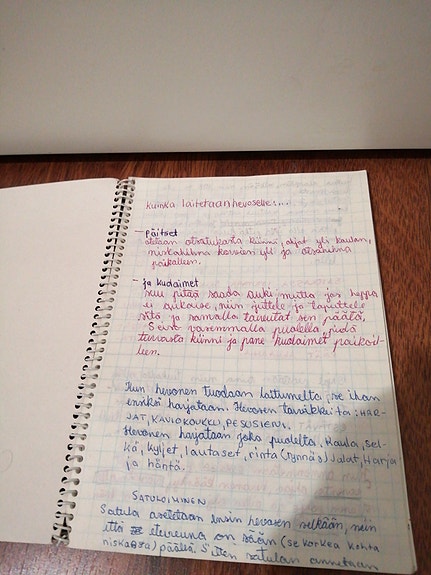 kuinka laitetaan hevoselle:...
- Päitset
otetaan otsatukasta kiinni, ohjat yli kaulan,
niskahihna korvien yli ja otsahihna
paikalleen.
- ja kudaimet
suu pitää saada auki mutta jos heppa
ei aukaise, niin juttele ja taputtele
sitä ja samalla taivutat sen päätä.
Seiso vasemmalla puolella, pidä
turvasta kiinni ja pane kudaimet paikoil-
leen.
Kun hevonen tuodaan laitumelta, se ihan
ensiksi harjataan. Hevosen tarvikkeita: HAR-
JAT, KAVIOKOUKKU, PESUSIENI.
Hevonen harjataan joka puolelta. Kaula, sel-
kä, kyljet, lautaset, rinta (ryntäs) Jalat, Harja
ja häntä.
SATULOIMINEN
Satula asetetaan ensin hevosen selkään, niin
että etureuna on sään (se korkea kohta
niskassa) päällä. Sitten satulan annetaan